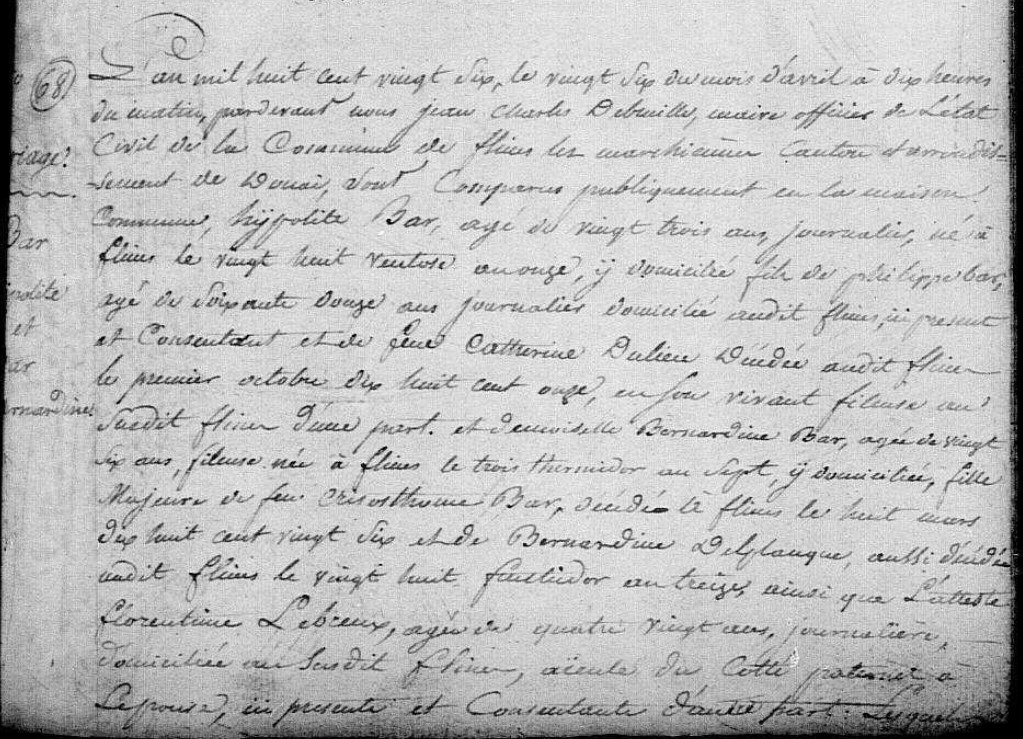 68
L'an mil huit cent vingt six, le vingt six du mois d'avril à dix heures
du matin, pardevant nous jean Charles Debaille, maire officier de L'état
riage.
Civil de la Commune de flines lez marchiennes Canton et arrondis-
-sement de Douai, Sont Comparus publiquement en la maison
Bar
Commune, hÿpolite Bar, agé de vingt trois ans, journalier, né à
flines le vingt huit Ventose an onze, ÿ domicilié fils de philippe bar,
polite
agé de Soixante douze ans journalier domicilié audit flines, ici present
et
et Consentant et de feue Catherine Dulieu Décédée audit flines
ar
le premier octobre dix huit cent onze, en son vivant fileuse au
ernardine
Susdit flines d'une part. et demoiselle Bernardine Bar, agée de vingt
Six ans, fileuse née à flines le trois thermidor an Sept, ÿ domiciliée, fille
Majeure de feu Crisosthome Bar, décédé à flines le huit mars
dix huit cent vingt Six et de Bernardine Delplanque, aussi décédée
audit flines le vingt huit fructidor an treize, ainsi que L'atteste
florentine Lebreux, agée de quatre vingt ans, journalière,
domiciliée au Susdit flines, aïeule du Cotté paternel à
Lepouse, ici presente et Consentante d'autre part. Lesquels